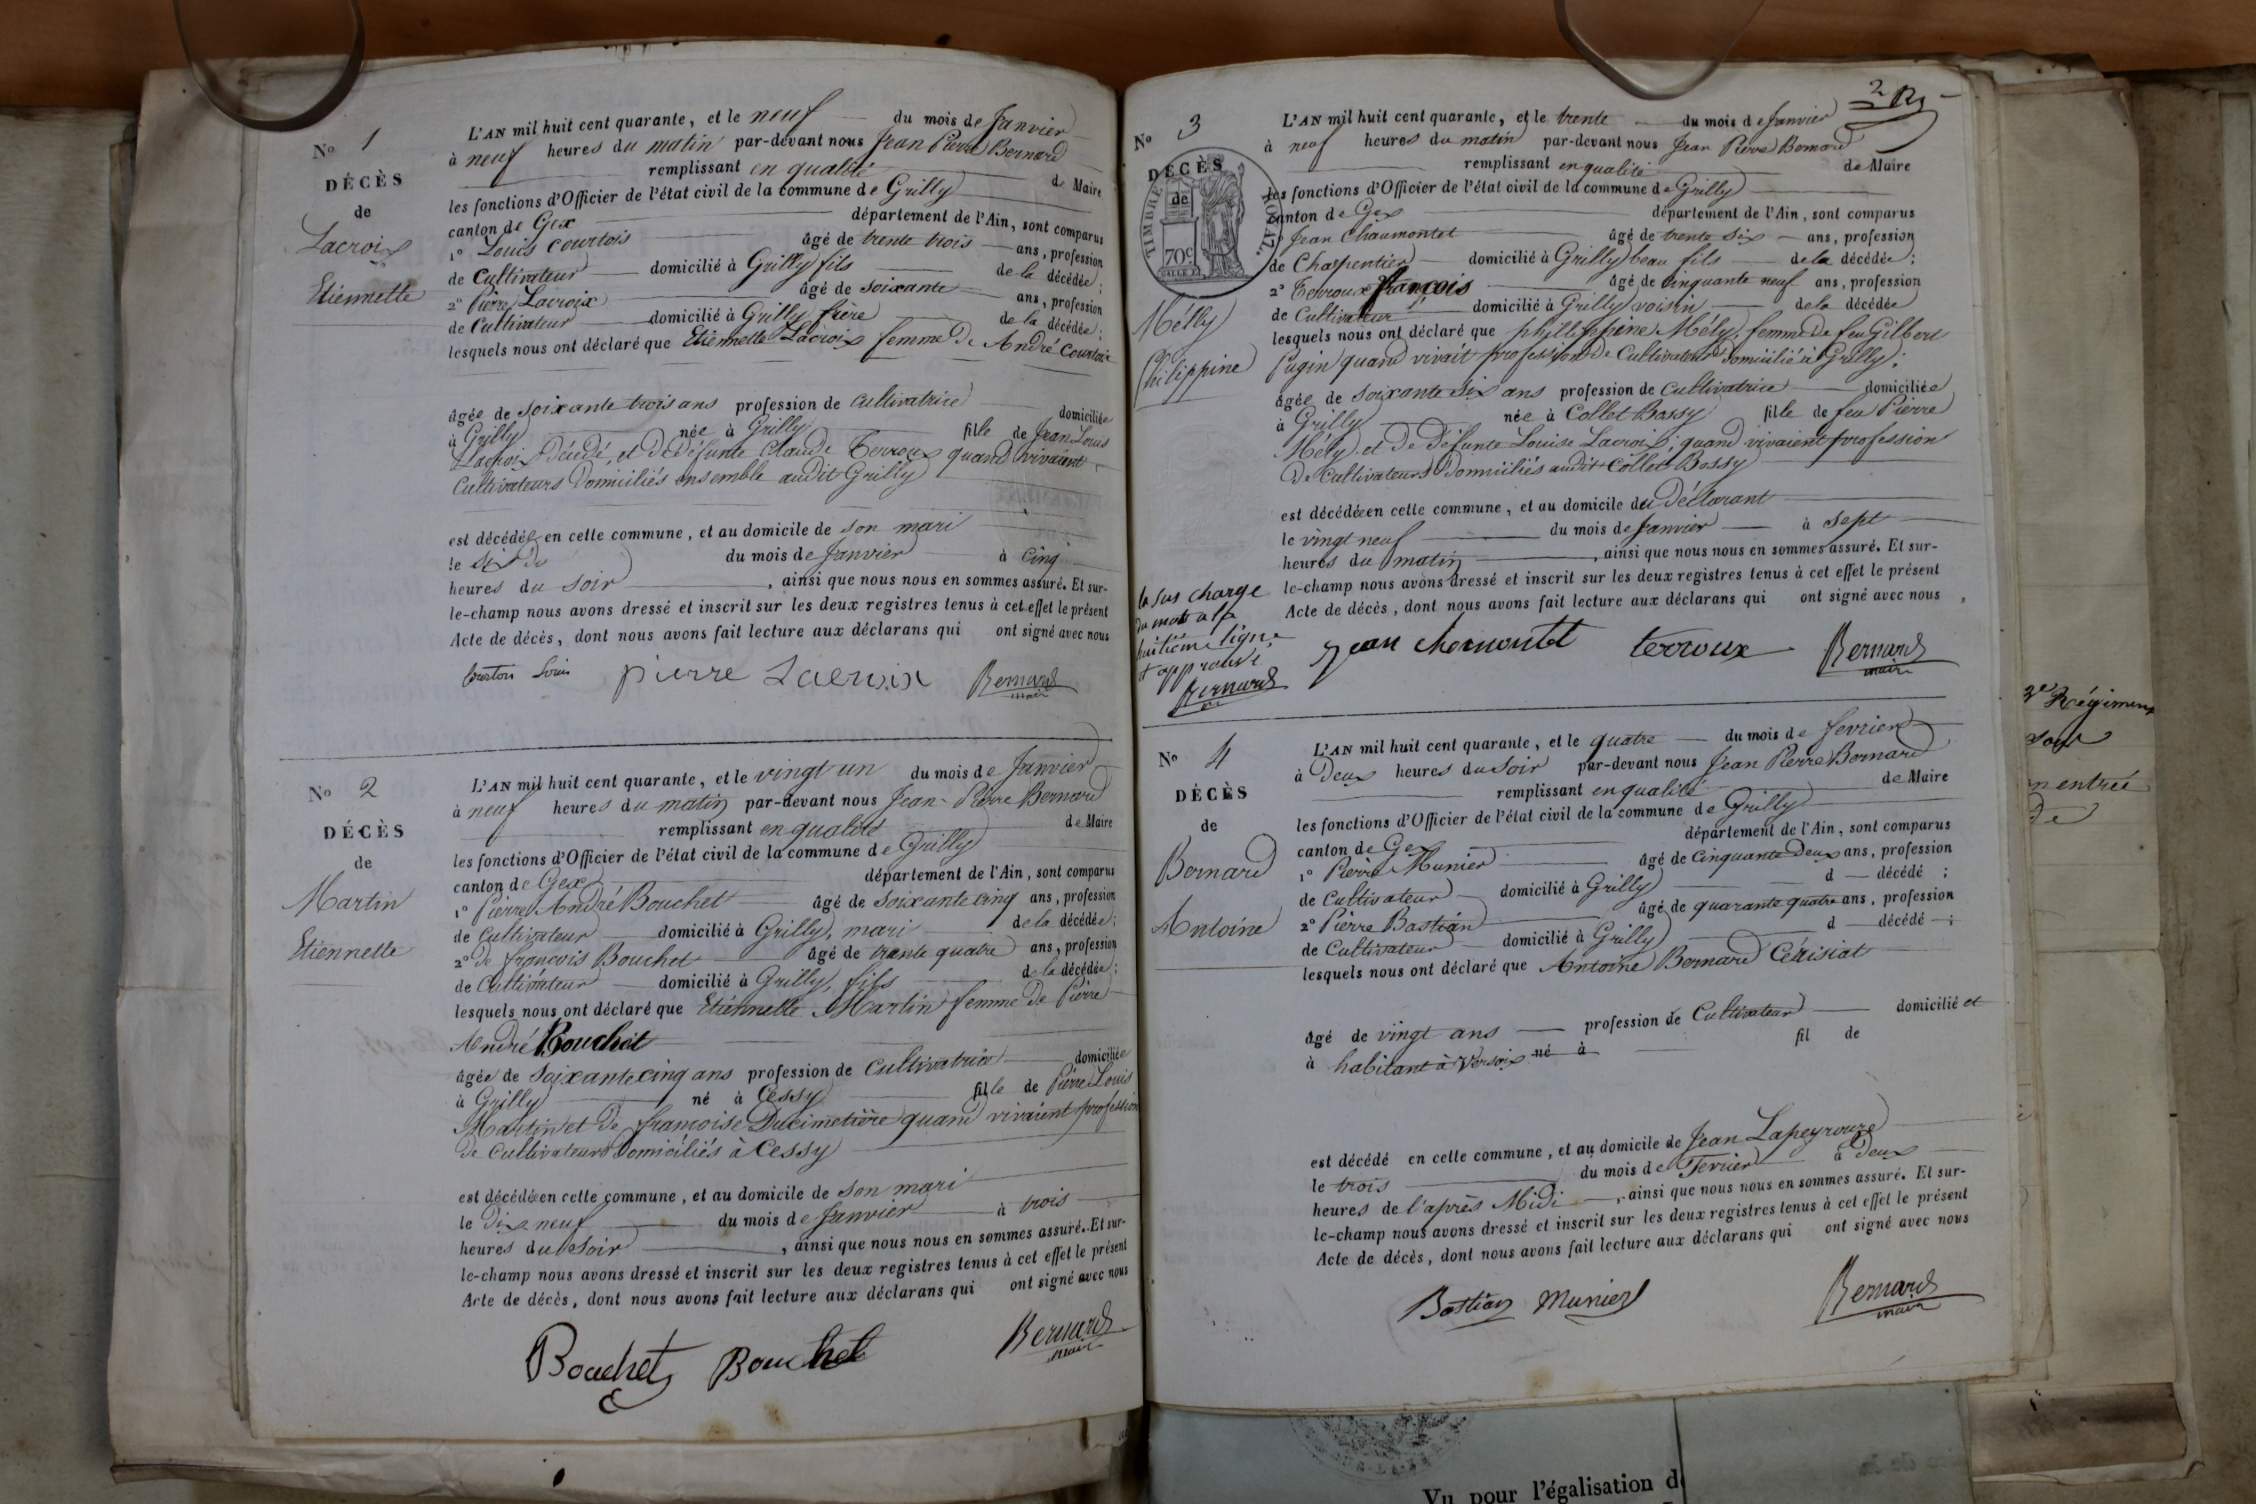 No 1
DÉCÈS
de
Lacroix
Etiennette
L'AN mil huit cent quarante, et le neuf du mois de Janvier
à neuf heures du matin par-devant nous Jean Pierre Bernard
remplissant en qualité de Maire
les fonctions d'Officier de l'état civil de la commune de Grilly
canton de Gex département de l'Ain, sont comparus
1° Louis Courtois âgé de trente trois ans, profession
de Cultivateur domicilié à Grilly fils de la décédée;
2° Pierre Lacroix âgé de soixante ans, profession
de Cultivateur domicilié à Grilly frère de la décédée;
lesquels nous ont déclaré que Etiennette Lacroix femme de André Courtois
âgée de soixante trois ans profession de Cultivatrice domiciliée
à Grilly née à Grilly fille de Jean Louis
Lacroix décédé, et de défunte Claude Terroux quand vivaient
Cultivateurs domiciliés ensemble audit Grilly
est décédée en cette commune, et au domicile de son mari
le six du mois de Janvier à cinq
heures du soir, ainsi que nous nous en sommes assuré. Et sur-
le-champ nous avons dressé et inscrit sur les deux registres tenus à cet effet le présent
Acte de décès, dont nous avons fait lecture aux déclarans qui ont signé avec nous
Louis pierre Lacroix Bernard
maire
No 2
DÉCÈS
de
Martin
Etiennette
L'AN mil huit cent quarante, et le vingt un du mois de Janvier
à neuf heures du matin par-devant nous Jean Pierre Bernard
remplissant en qualité de Maire
les fonctions d'Officier de l'état civil de la commune de Grilly
canton de Gex département de l'Ain, sont comparus
1° Pierre André Bouchet âgé de soixante cinq ans, profession
de Cultivateur domicilié à Grilly, mari de la décédée;
2° de françois Bouchet âgé de trente quatre ans, profession
de Cultivateur domicilié à Grilly, fils de la décédée;
lesquels nous ont déclaré que Etiennette Martin femme de Pierre
André Bouchet
âgée de soixante cinq ans profession de Cultivatrice domiciliée
à Grilly né à Cessy fille de Pierre Louis
Martin et de françoise Ducimetière quand vivaient profession
de Cultivateurs domiciliés à Cessy
est décédée en cette commune, et au domicile de son mari
le dix neuf du mois de Janvier à trois
heures du soir, ainsi que nous nous en sommes assuré. Et sur-
le-champ nous avons dressé et inscrit sur les deux registres tenus à cet effet le présent
Acte de décès, dont nous avons fait lecture aux déclarans qui ont signé avec nous
Bouchet Bouchet Bernard
maire
2
No 3
DÉCÈS
de
TIMBRE ROYAL.
70c
Mélly
Philippine
L'AN mil huit cent quarante, et le trente du mois de Janvier
à neuf heures du matin par-devant nous Jean Pierre Bernard
remplissant en qualité de Maire
les fonctions d'Officier de l'état civil de la commune de Grilly
canton de Gex département de l'Ain, sont comparus
1° Jean Chaumontet âgé de trente six ans, profession
de Charpentier domicilié à Grilly beau fils de la décédée;
2° Terroux françois âgé de cinquante neuf ans, profession
de Cultivateur domicilié à Grilly voisin de la décédée
lesquels nous ont déclaré que phillippine Mély, femme de feu Gilbert
Pugin quand vivait profession de Cultivateur domicilié à Grilly;
âgée de soixante six ans profession de Cultivatrice domiciliée
à Grilly née à Collet Bossy fille de feu Pierre
Mély et de défunte Louise Lacroix; quand vivaient profession
de Cultivateurs domiciliés audit Collet Bossy
est décédée en cette commune, et au domicile du déclarant
le vingt neuf du mois de Janvier à sept
heures du matin, ainsi que nous nous en sommes assuré. Et sur-
le-champ nous avons dressé et inscrit sur les deux registres tenus à cet effet le présent
Acte de décès, dont nous avons fait lecture aux déclarans qui ont signé avec nous
la sus charge
du mot a la
huitieme ligne
et approuvé
Bernard
Jean chomontet terroux Bernard
maire
No 4
DÉCÈS
de
Bernard
Antoine
L'AN mil huit cent quarante, et le quatre du mois de fevrier
à Deux heures du soir par-devant nous Jean Pierre Bernard
remplissant en qualité de Maire
les fonctions d'Officier de l'état civil de la commune de Grilly
canton de Gex département de l'Ain, sont comparus
1° Pierre Munier âgé de cinquante deux ans, profession
de Cultivateur domicilié à Grilly d décédé;
2° Pierre Bastian âgé de quarante quatre ans, profession
de Cultivateur domicilié à Grilly d décédé;
lesquels nous ont déclaré que Antoine Bernard Cérisiat
âgé de vingt ans profession de Cultivateur domicilié et
à habitant à Versoix né à fil de
est décédé en cette commune, et au domicile de Jean Lapeyrouze
le trois du mois de Fevrier à deux
heures de l'après Midi, ainsi que nous nous en sommes assuré. Et sur-
le-champ nous avons dressé et inscrit sur les deux registres tenus à cet effet le présent
Acte de décès, dont nous avons fait lecture aux déclarans qui ont signé avec nous
Bastian Munier Bernard
maire
Régiment
entrée
de
Vu pour l'égalisation d